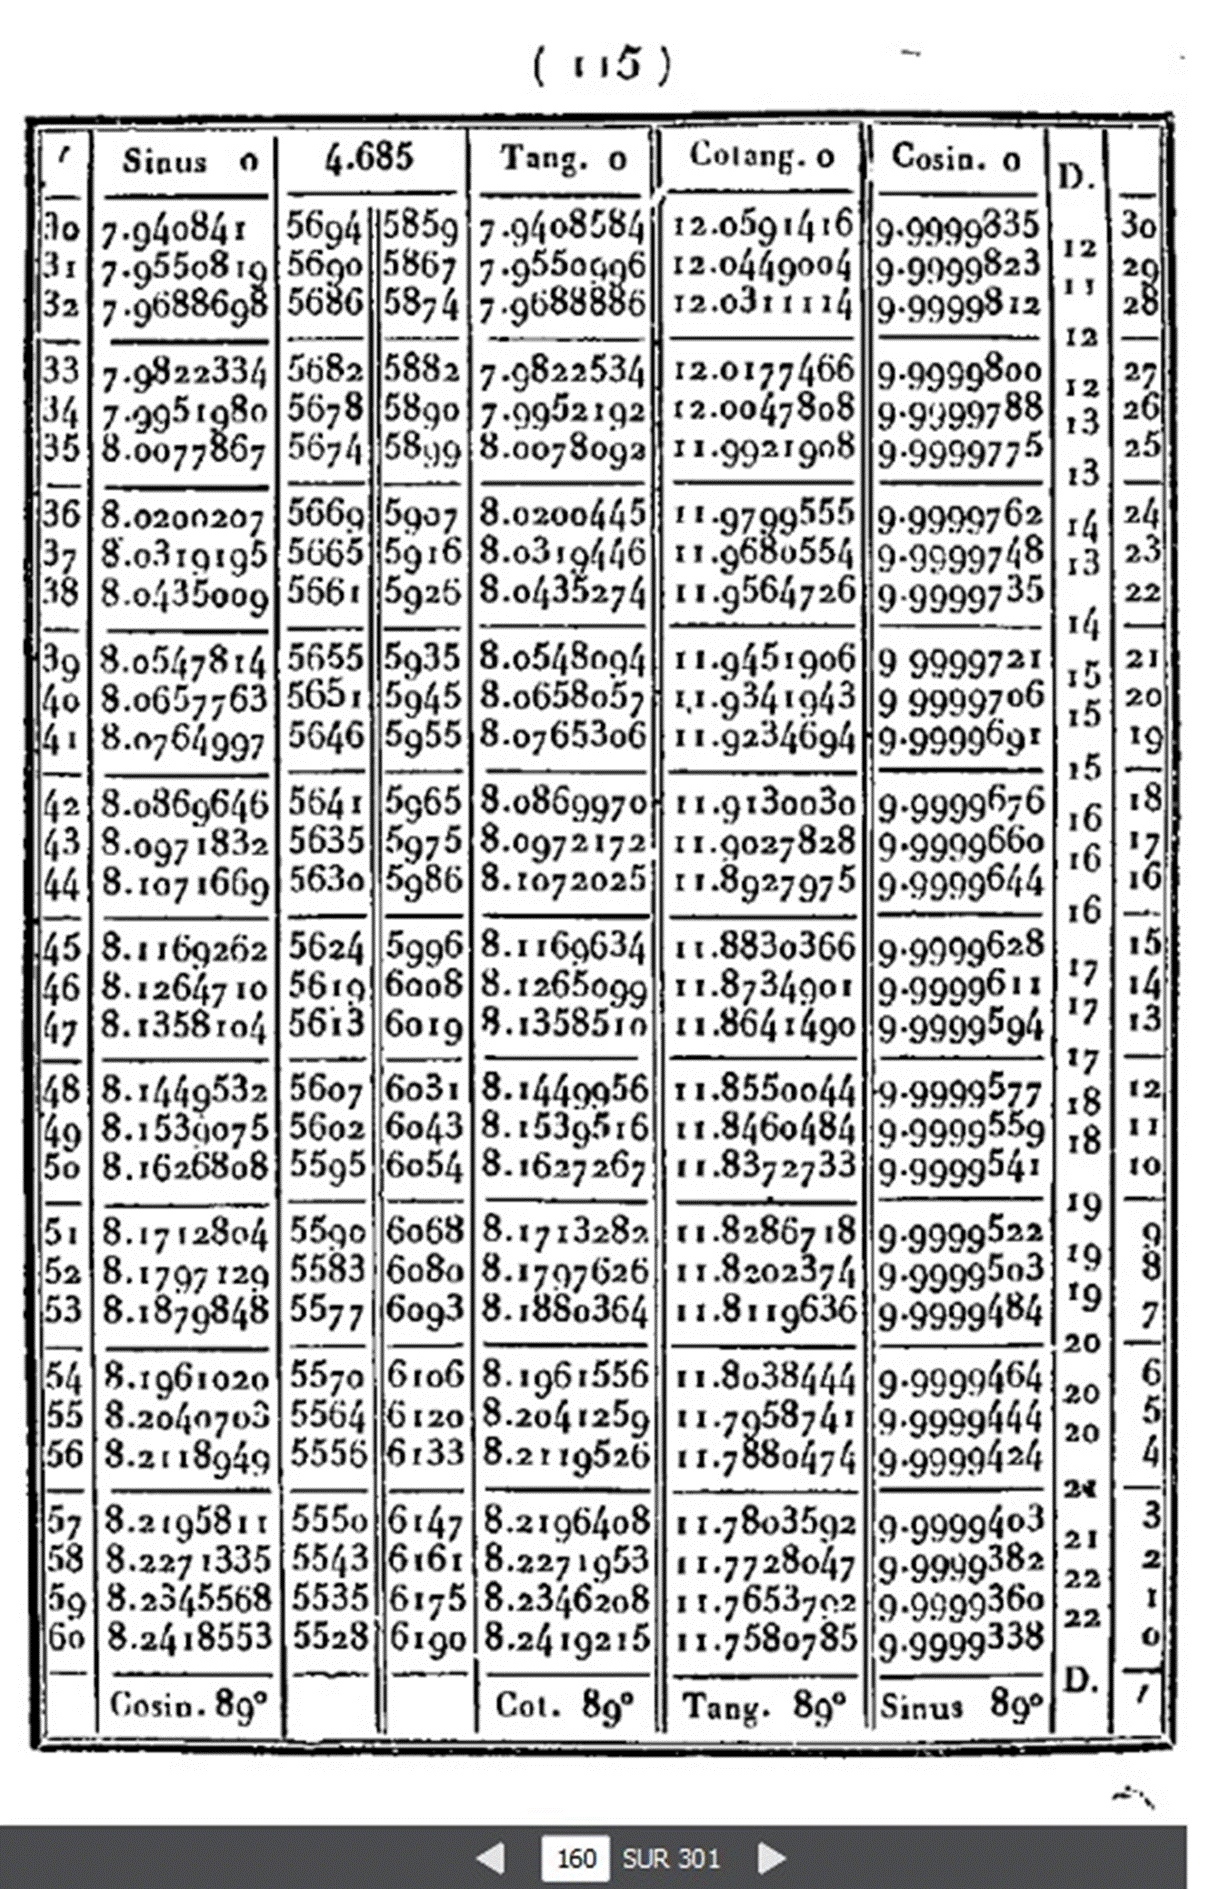 ( 115 )
′ Sinus 0 4.685 Tang. 0 Cotang. 0 Cosin. 0 D.
30 7.940841 5694 5859 7.9408584 12.0591416 9.9999835 30
12
31 7.9550819 5690 5867 7.9550996 12.0449004 9.9999823 29
11
32 7.9688698 5686 5874 7.9688886 12.0311114 9.9999812 28
12
33 7.9822334 5682 5882 7.9822534 12.0177466 9.9999800 27
12
34 7.9951980 5678 5890 7.9952192 12.0047808 9.9999788 26
13
35 8.0077867 5674 5899 8.0078092 11.9921908 9.9999775 25
13
36 8.0200207 5669 5907 8.0200445 11.9799555 9.9999762 24
14
37 8.0319195 5665 5916 8.0319446 11.9680554 9.9999748 23
13
38 8.0435009 5661 5926 8.0435274 11.9564726 9.9999735 22
14
39 8.0547814 5655 5935 8.0548094 11.9451906 9 9999721 21
15
40 8.0657763 5651 5945 8.0658057 11.9341943 9 9999706 20
15
41 8.0764997 5646 5955 8.0765306 11.9234694 9.9999691 19
15
42 8.0869646 5641 5965 8.0869970 11.9130030 9.9999676 18
16
43 8.0971832 5635 5975 8.0972172 11.9027828 9.9999660 17
16
44 8.1071669 5630 5986 8.1072025 11.8927975 9.9999644 16
16
45 8.1169262 5624 5996 8.1169634 11.8830366 9.9999628 15
17
46 8.1264710 5619 6008 8.1265099 11.8734901 9.9999611 14
17
47 8.1358104 5613 6019 8.1358510 11.8641490 9.9999594 13
17
48 8.1449532 5607 6031 8.1449956 11.8550044 9.9999577 12
18
49 8.1539075 5602 6043 8.1539516 11.8460484 9.9999559 11
18
50 8.1626808 5595 6054 8.1627267 11.8372733 9.9999541 10
19
51 8.1712804 5590 6068 8.1713282 11.8286718 9.9999522 9
19
52 8.1797129 5583 6080 8.1797626 11.8202374 9.9999503 8
19
53 8.1879848 5577 6093 8.1880364 11.8119636 9.9999484 7
20
54 8.1961020 5570 6106 8.1961556 11.8038444 9.9999464 6
20
55 8.2040703 5564 6120 8.2041259 11.7958741 9.9999444 5
20
56 8.2118949 5556 6133 8.2119526 11.7880474 9.9999424 4
21
57 8.2195811 5550 6147 8.2196408 11.7803592 9.9999403 3
21
58 8.2271335 5543 6161 8.2271953 11.7728047 9.9999382 2
22
59 8.2345568 5535 6175 8.2346208 11.7653792 9.9999360 1
22
60 8.2418553 5528 6190 8.2419215 11.7580785 9.9999338 0
Cosin. 89° Cot. 89° Tang. 89° Sinus 89° D. ′
160 SUR 301